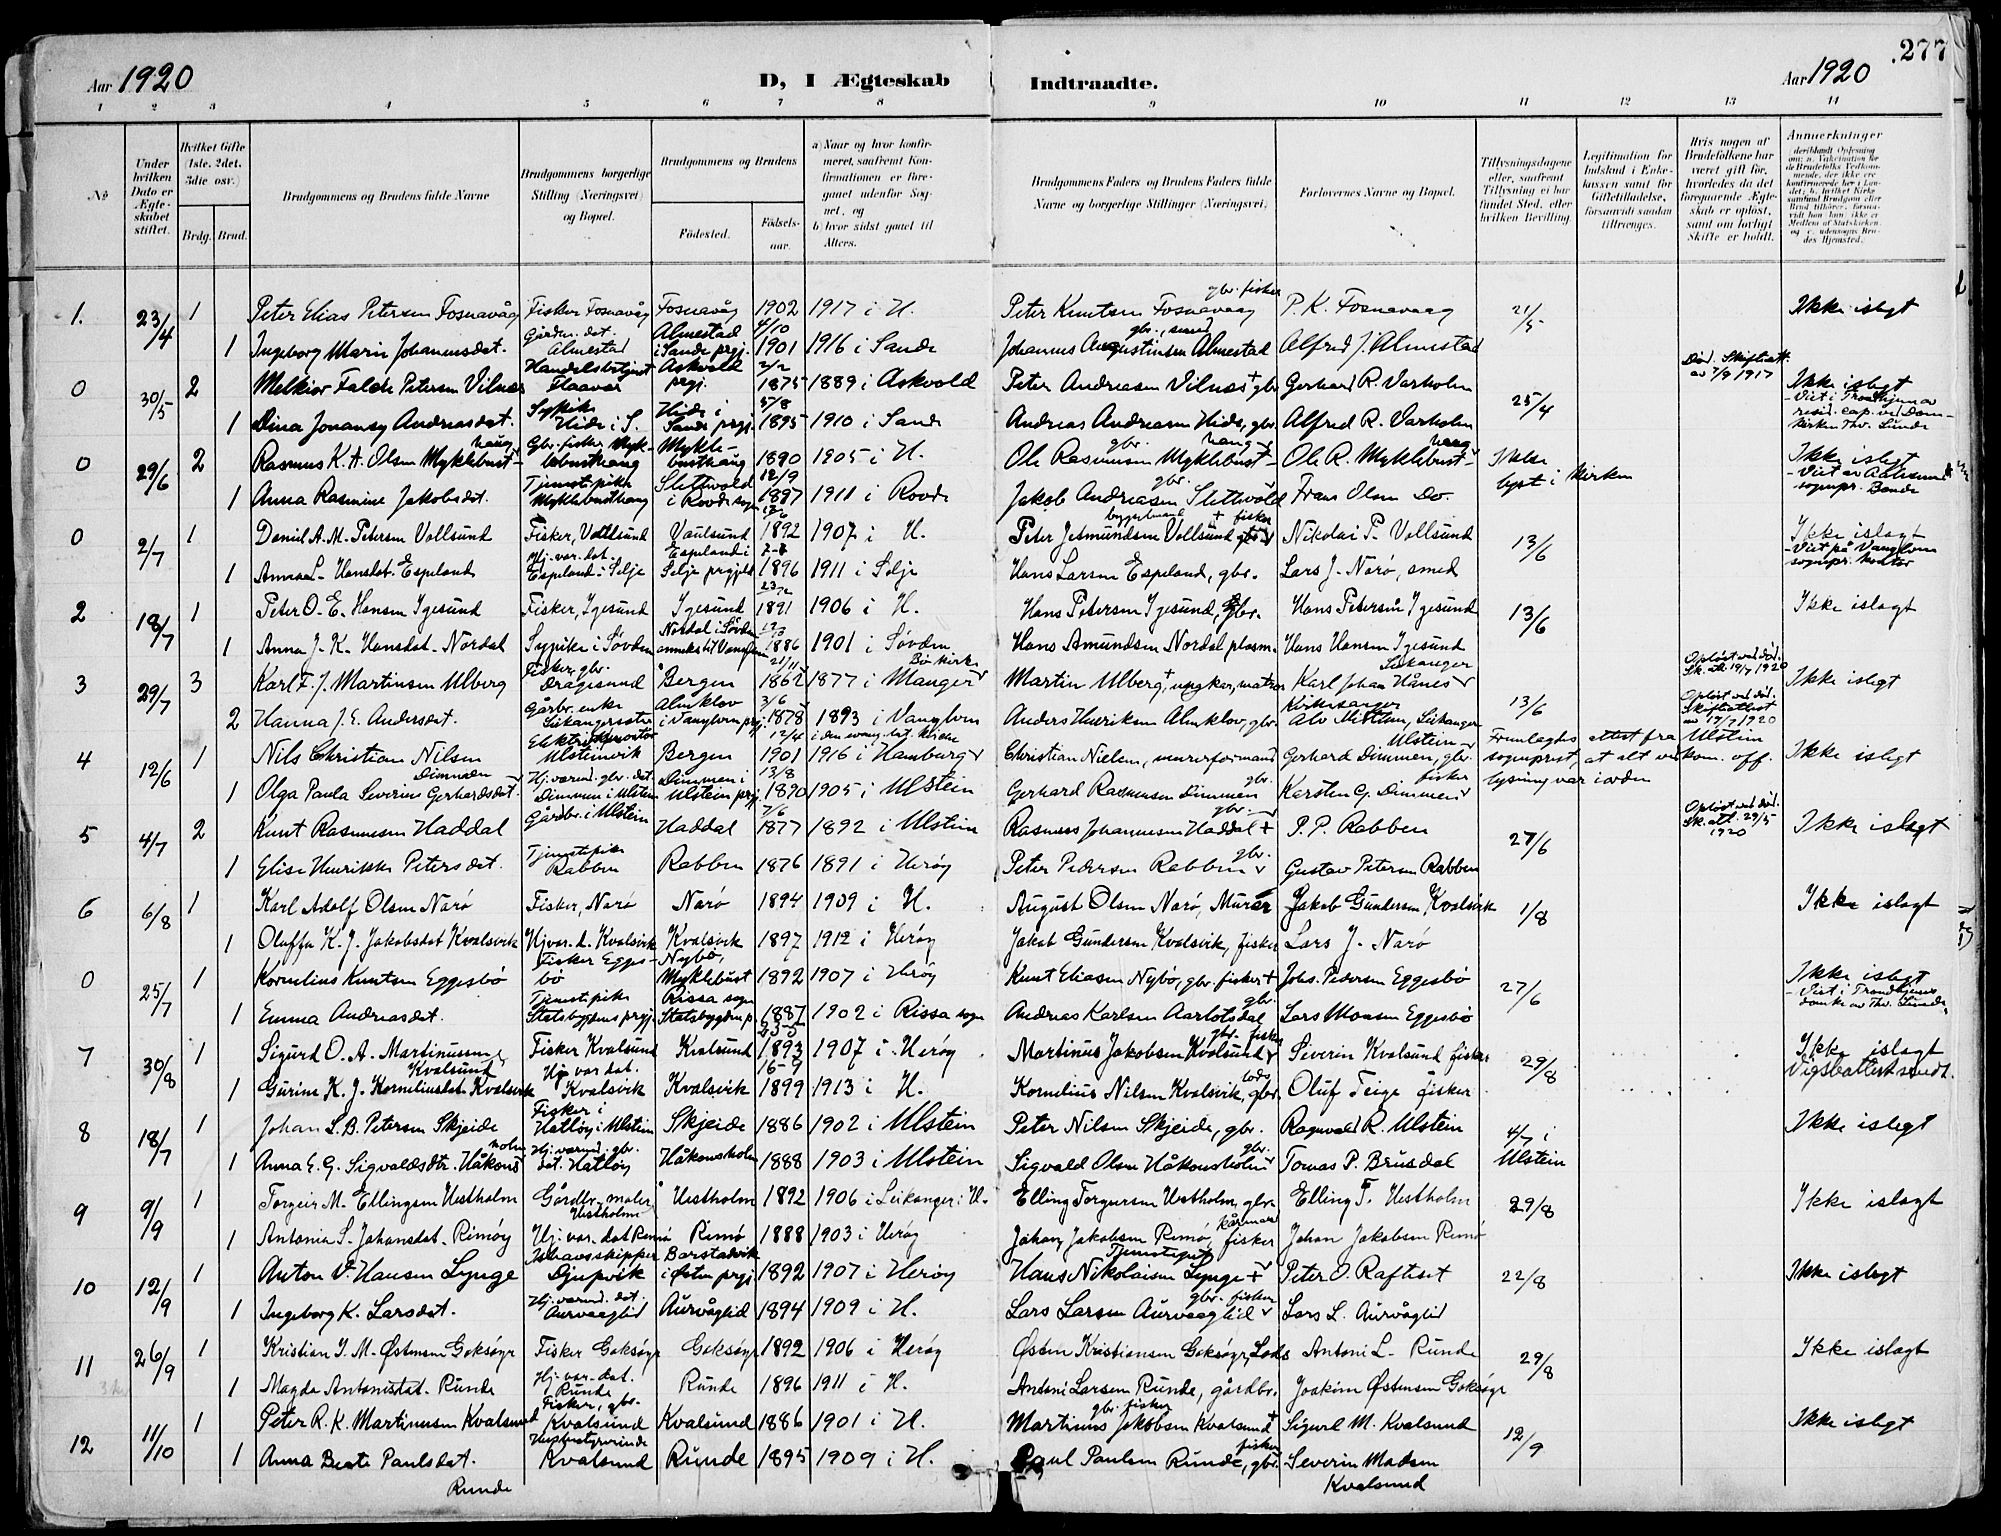 277
Aar 1920 D, I Ægteskab Indtraadte. Aar 1920
1 2 3 4 5 6 7 8 9 10 11 12 13 14
No
Under hvilken Dato er Ægteskabet stiftet.
Hvilket Gifte (1ste, 2det, 3die osv.)
Brdg. Brud.
Brudgommens og Brudens fulde Navne
Brudgommens borgerlige Stilling (Næringsvei) og Bopæl.
Brudgommens og Brudens
Fødested. Fødselsaar.
a) Naar og hvor konfirmeret, saafremt Konfirmationen er foregaaet udenfor Sognet, og
b) hvor sidst gaaet til Alters.
Brudgommens Faders og Brudens Faders fulde Navne og borgerlige Stillinger (Næringsvei)
Forlovernes Navne og Bopæl.
Tillysningsdagene eller, saafremt Tillysning ei har fundet Sted, efter hvilken Bevilling.
Legitimation for Indskud i Enkekassen samt for Giftetilladelse, forsaavidt saadan tiltrænges.
Hvis nogen af Brudefolkene har været gift før, hvorledes da det foregaaende Ægteskab er opløst, samt om lovligt Skifte er holdt.
Anmerkninger
1. 23/4 1 Peter Elias Petersen Fosnavåg Fisker Fosnavåg Fosnavåg 1902 1917 i H. Peter Knutsen Fosnavaag gbr. fisker P. K. Fosnavaag 21/5 Ikke islegt
1 Ingeborg Marie Johannesdat. Gårdm. dat. Almestad Almestad i Sande prgj. 4/10 1901 1916 i Sande Johannes Augustinsen Almestad gbr., smed Alfred J. Almestad
0 30/5 2 Melkior Falck Petersen Vilnes Handelsbetjent Flaavær Askvold prgj. 2/2 1875 1889 i Askvold Peter Andreasen Vilnes + gbr Gerhard R. Varholm 25/4 Død. Skifteatt. av 7/9 1917 Ikke islegt - Viet i Trondhjem av resid. cap. ved Domkirken Thv. Sunde
1 Dina Jonansy Andreasdat. Sypike Hide i S. Hide i Sande prgj. 5/8 1895 1910 i Sande Andreas Andreasen Hide, gbr. Alfred R. Varholm
0 29/6 2 Rasmus K. A. Olsen Myklebusthaug Gbr. fisker Myklebusthaug Myklebusthaug 1890 1905 i H. Ole Rasmussen Myklebusthaug gbr. Ole R. Myklebusthaug Ikke lyst i kirken Ikke islegt - Viet av Aalesund sognepr. Bonde
1 Anna Rasmine Jakobsdat. Tjenestepike Myklebusthaug Slettvold i Rovde sogn 12/9 1897 1911 i Rovde Jakob Andreasen Slettvold gbr. Frans Olsen Do.
0 2/7 1 Daniel A. M. Petersen Vollsund Fisker, Vollsund Vaulsund 1892 1907 i H. Peter Jetmundsen Vollsund + fisker Nikolai P. Vollsund 13/6 Ikke islagt - Viet på Vanylven sognepr. Koder
1 Anna L. Hansdat. Espeland Hj. vær. dat. Espeland i Selje Espeland i Selje prgjld 1896 1911 i Selje Hans Larsen Espeland, gbr. Lars J. Nærø, smed
2 18/7 1 Peter O. E. Hansen Igesund Fisker, Igesund Igesund 1891 1906 i H. Hans Petersen Igesund, gbr. Hans Petersen Igesund 13/6 Ikke islagt
1 Anna J. K. Hansdat. Nordal Sypike i Søvden Nordal i Søvden anneks til Vanylven 1886 1901 i Søvden Hans Amundsen Nordal plasm. Hans Hansen Igesund
3 29/7 3 Karl F. J. Martinsen Ulberg Fisker, gbr. Dragesund Bergen 21/11 1862 1877 i Manger Bø kirke Martin Ulberg +, ungkar, matros Karl Johan Hånes Leikanger 13/6 Opløst ved død. Sk. att. 19/7 1920 Ikke islegt
2 Hanna J. E. Andersdat. Gårdbr. enke Leikangersætr Almklov i Vanylven prgj. 3/6 1878 1893 i Vanylven Anders Henriksen Almklov, gbr. Kirkesanger Alv Mittun, Leikanger Opløst ved død. Skifteattest av 19/7 1920
4 12/6 1 Nils Christian Nilsen Elektrikermontør Ulsteinvik Bergen 12/4 1901 1916 i Hamburg i den evang. lut. kirke Christian Nielsen, murerformand Gerhard Dimmen, gbr. Ulstein Fremlagdes attest fra Ulstein sogneprest, at alt vedkom. off. lysning var i orden Ikke islegt
1 Olga Paula Severine Gerhardsdat. Dimmen Hj. værend. gbr. dat. Dimmen i Ulstein Dimmen i Ulstein prgj. 13/8 1890 1905 i Ulstein Gerhard Rasmussen Dimmen gbr. Karsten G. Dimmen fisker
5 4/7 2 Knut Rasmussen Haddal Gårdbr. i Ulstein Haddal 7/6 1877 1892 i Ulstein Rasmus Johannesen Haddal + gbr. P. P. Rabben 27/6 Opløst ved død. Sk. att. 29/5 1920 Ikke islegt
1 Elise Henrikke Petersdat. Tjenestepike Rabben Rabben 1876 1891 i Herøy Peter Pedersen Rabben gbr. Gustav Petersen Rabben
6 6/8 1 Karl Adolf Olsen Nærø Fisker, Nærø Nærø 1894 1909 i H. August Olsen Nærø, Murer Jakob Gundersen Kvalsvik 1/8 Ikke islagt
1 Oluffa K. J. Jakobsdat Kvalsvik Hj. vær. d. Kvalsvik Kvalsvik 1897 1912 i Herøy Jakob Gundersen Kvalsvik, fisker Lars J. Nærø
0 25/7 1 Kornelius Knutsen Eggesbø Fisker Eggesbø Nybø, Myklebust 1892 1907 i Herøy Knut Eliasen Nybø, gbr. fisker + Johs. Pedersen Eggesbø 27/6 Ikke islegt - Viet i Trondhjems domk. av Thv. Sunde
1 Emma Andreasdat. Tjenestepike Statsbygdens prgj. Rissa sogn Statsbygdens p. 1887 1902 i Rissa sogn Andreas Karlsen Aarlotsdal gbr. Lars Monsen Eggesbø
7 30/8 1 Sigurd O. A. Martinussen Kvalsund Fisker Kvalsund Kvalsund 23-5 1893 1907 i Herøy Martinus Jakobsen Kvalsund gbr. fisker Severin Kvalsund fisker 29/8 Ikke islagt Vigselattest sendt.
1 Gurine K. J. Korneliusdat Kvalsvik Hj. vær dat. Kvalsvik Kvalsvik 16-9 1899 1913 i H. Kornelius Nilsen Kvalsvik, gbr. lods Oluf Teige fisker
8 18/7 1 Johan L. B. Petersen Skjeide Fisker i Hatløy i Ulstein Skjeide 1886 1902 i Ulstein Peter Nilsen Skjeide, gbr. Ragnvald R. Ulstein 4/7 i Ulstein Ikke islegt
1 Anna E. G. Sigvaldsdtr. Håkonsholm Hj. værend. gbr. dat. Hatløy Håkonsholm 1888 1903 i Ulstein Sigvald Olsen Håkonsholm gbr. Tomas P. Brusdal
9 9/9 1 Torgeir M. Ellingsen Vestholm Gårdbr. maler Vestholm Vestholm 1892 1906 i Leikanger i H. Elling Torgersen Vestholm, gbr. Elling T. Vestholm 29/8 Ikke islagt
1 Antonia S. Johansdat. Remøy Hj. vær. dat Remø Remø 1888 1903 i Herøy Johan Jakobsen Remø, fisker kårmand Johan Jakobsen Remø
10 12/9 1 Anton V. Hansen Lynge Ishavsskipper Djupvik Barstadvik i Ørsten prgj. 1892 1907 i Herøy Hans Nikolaisen Lynge + Tjenestegut Peter O. Rafteset 22/8 Ikke islegt
1 Ingeborg K. Larsdat. Hj. værend. dat. Aurvaaglid Aurvåglid 1894 1909 i H. Lars Larsen Aurvaaglid gbr. fisker Lars L. Aurvåglid
11 26/9 1 Kristian I. M. Østensen Goksøyr Fisker Goksøyr Goksøyr 1892 1906 i Herøy Østen Kristiansen Goksøyr, Lods Antoni L. Runde 29/8 Ikke islagt
1 Magda Antonisdat. Runde Hj. vær. dat. Runde Runde 1896 1911 i H. Antoni Larsen Runde, gårdbr. Joakim Østensen Goksøyr
12 11/10 1 Peter R. K. Martinussen Kvalsund Fisker, gbr. Kvalsund Kvalsund 1886 1901 i H. Martinus Jakobsen Kvalsund + gbr. fisker Sigurd M. Kvalsund 12/9 Ikke islegt
1 Anna Beate Paulsdat. Runde Husbestyrerinde Kvalsund Runde 1895 1909 i H. Paul Paulsen Runde, gbr. fisker Severin Madsen Kvalsund